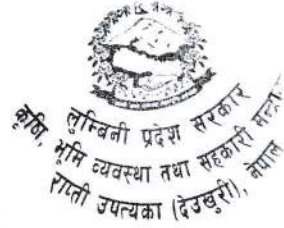 लुम्बिनी प्रदेश सरकार
कृषि, भूमि व्यवस्था तथा सहकारी मन्त्रा.
राप्ती उपत्यका (देउखुरी), नेपाल